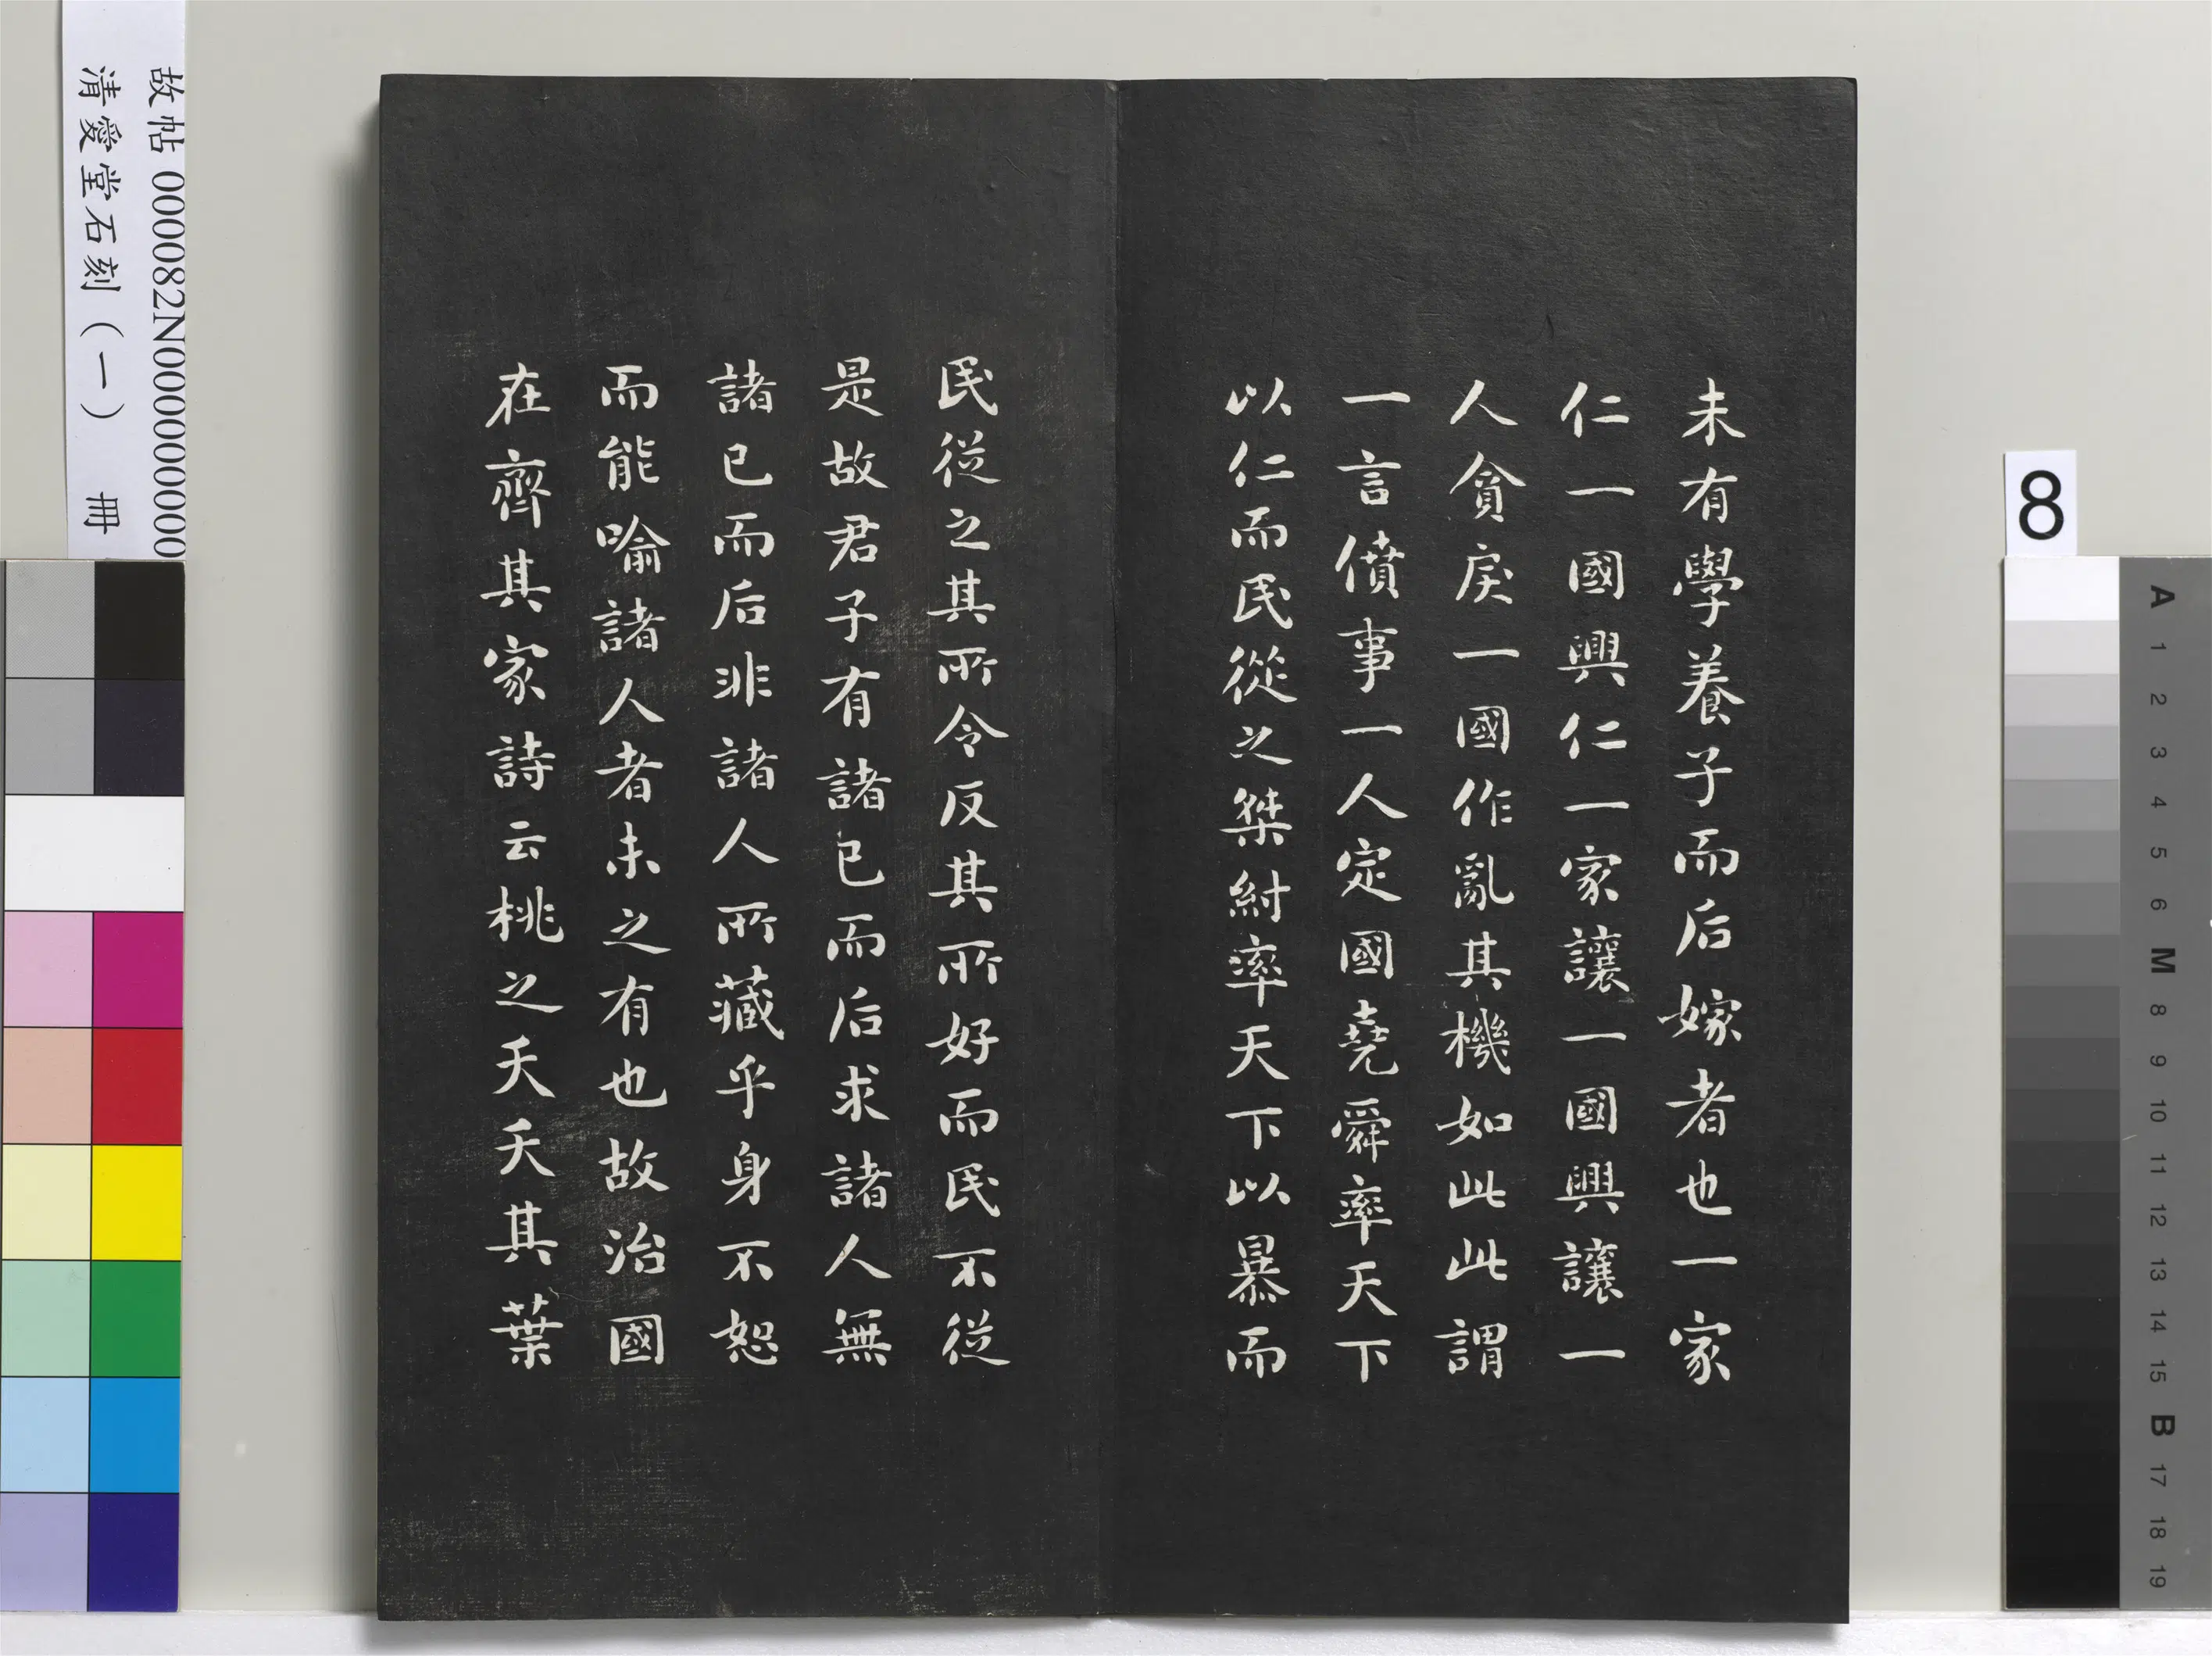 未有學養子而后嫁者也一家
仁一國興仁一家讓一國興讓一
人貪戾一國作亂其機如此此謂
一言僨事一人定國堯舜率天下
以仁而民從之桀紂率天下以暴而
民從之其所令反其所好而民不從
是故君子有諸己而后求諸人無
諸己而后非諸人所藏乎身不恕
而能喻諸人者未之有也故治國
在齊其家詩云桃之夭夭其葉
故帖 000082N000000000
清愛堂石刻(一) 冊
8
A 1 2 3 4 5 6 M 8 9 10 11 12 13 14 15 B 17 18 19